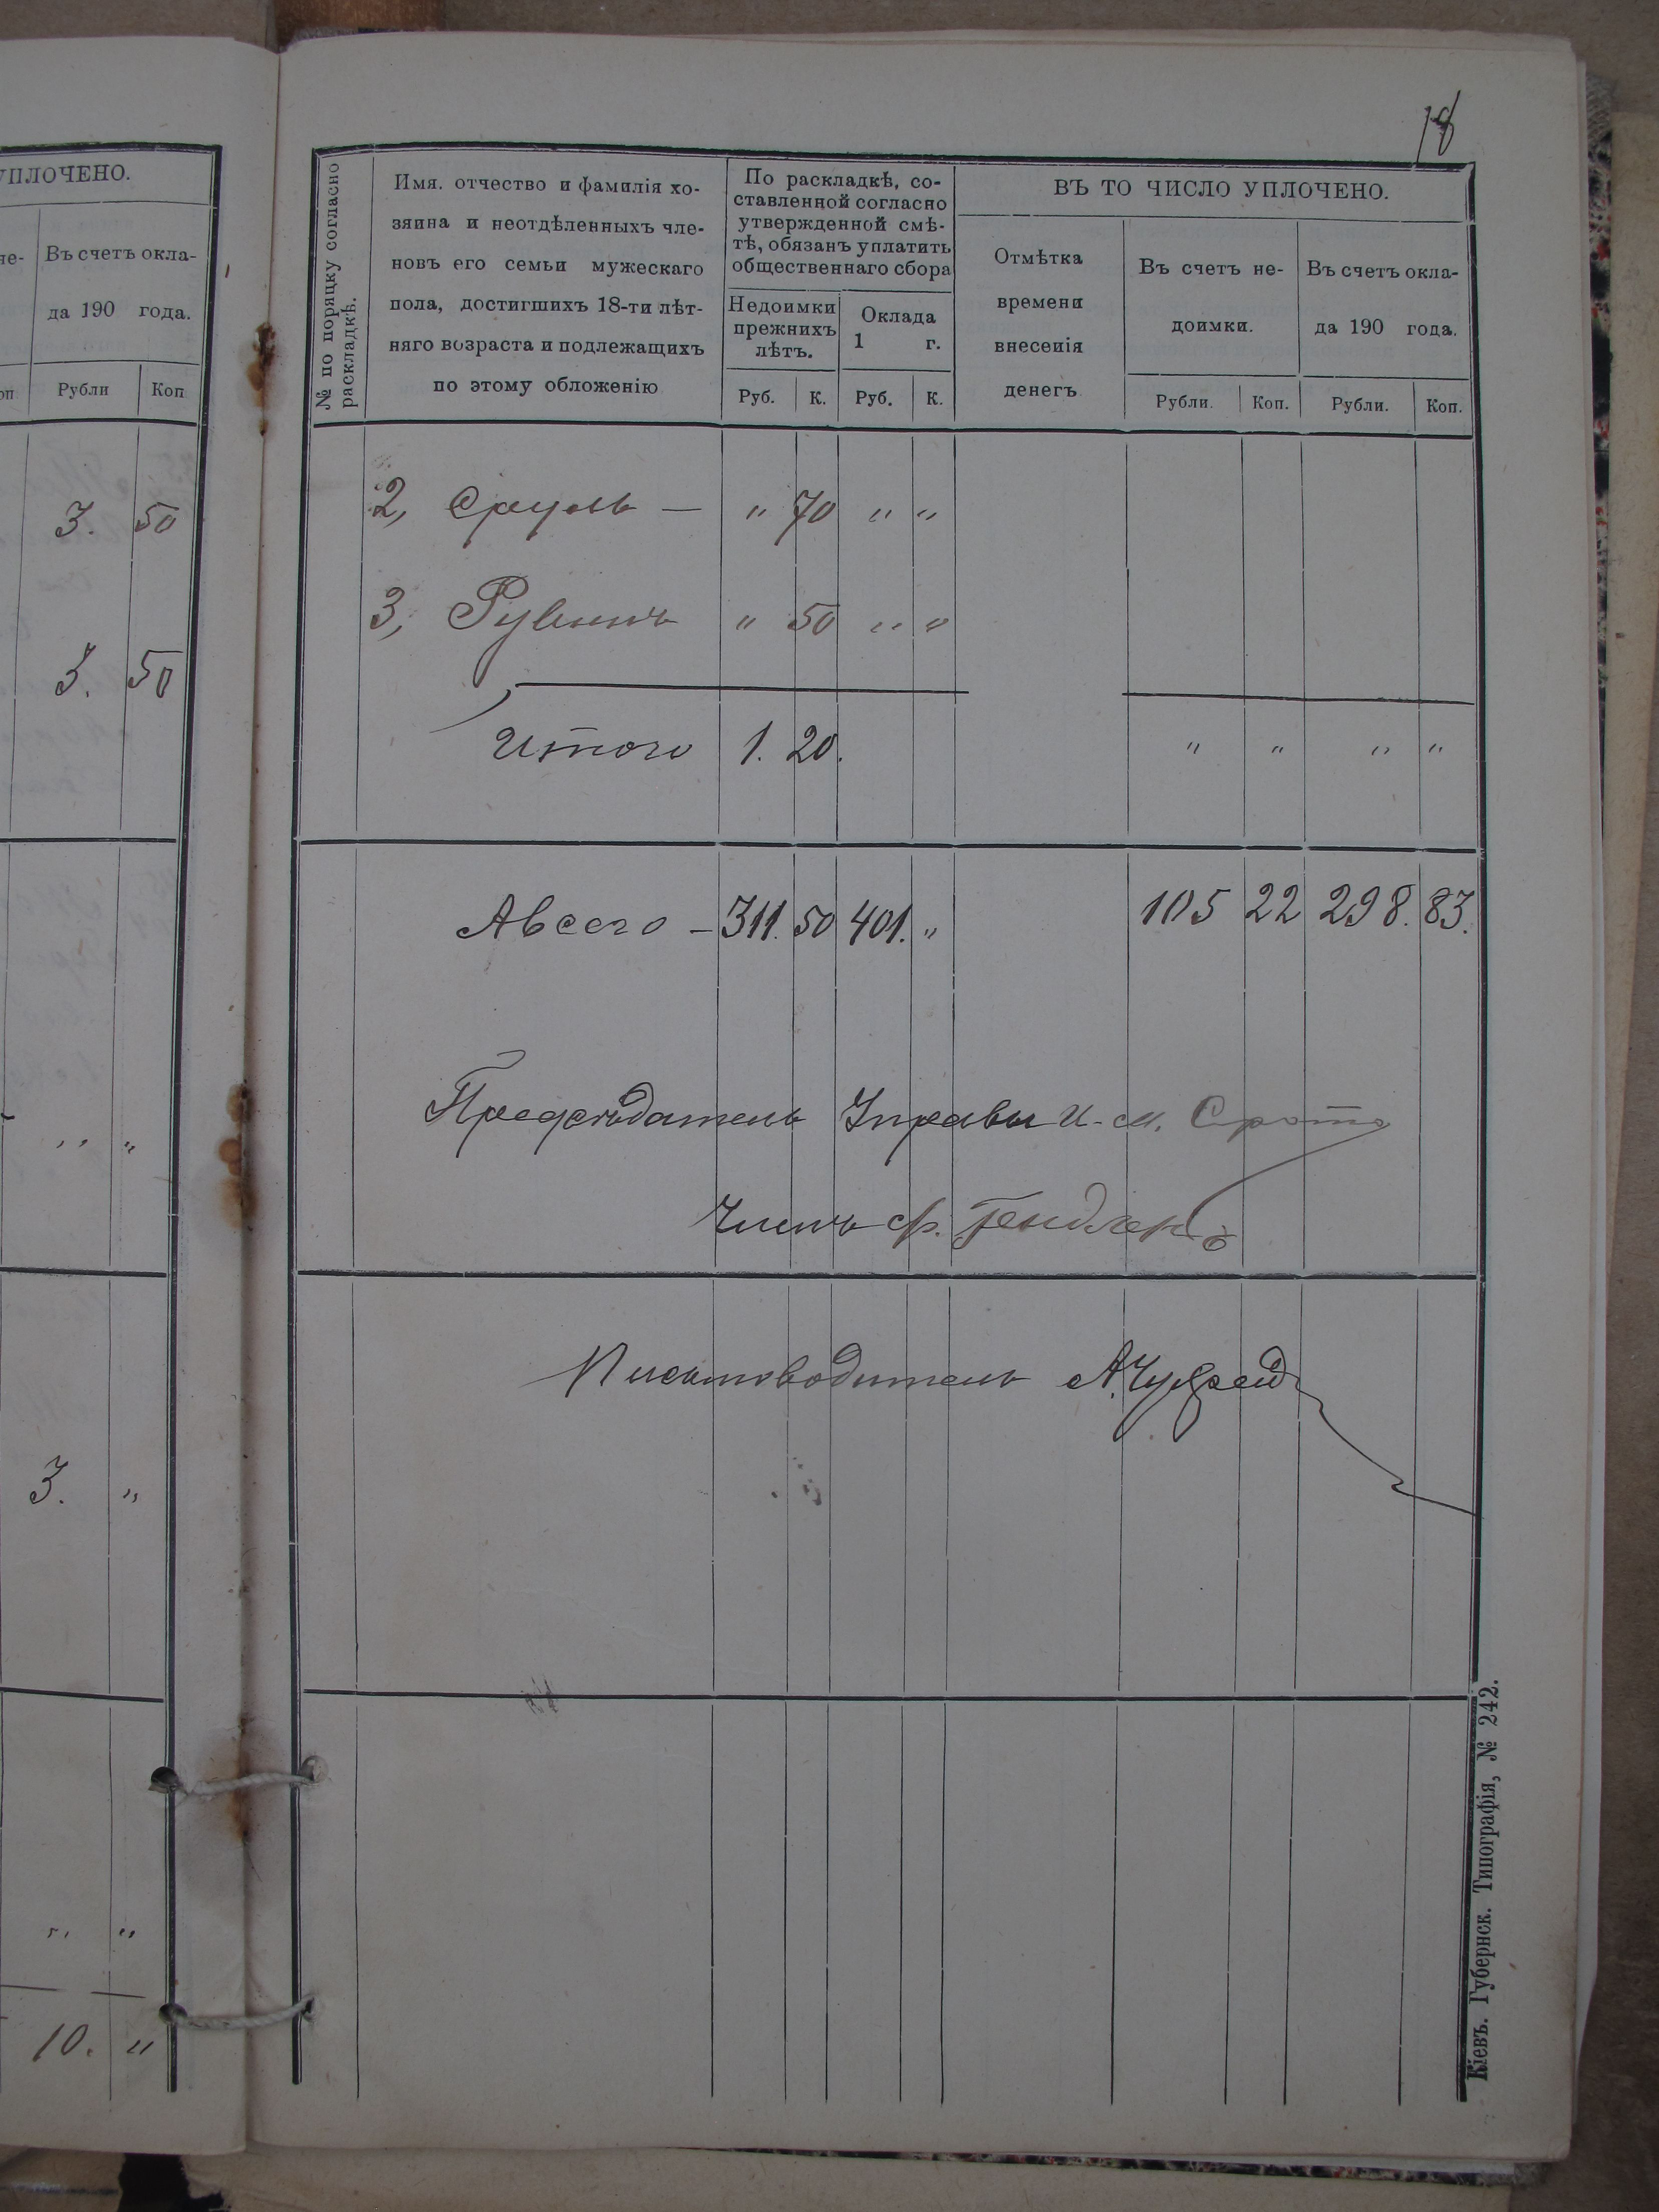 УПЛОЧЕНО.
Въ счетъ окла-
да 190 года.
Рубли Коп
3. 50
3. 50
„ „
3. „
„ „
10. „
18
№ по поряцку согласно
раскладкѣ.
Имя. отчество и фамилія хо-
зяина и неотдѣленныхъ чле-
новъ его семьи мужескаго
пола, достигшихъ 18-ти лѣт-
няго возраста и подлежащихъ
по этому обложенію
По раскладкѣ, со-
ставленной согласно
утвержденной смѣ-
тѣ, обязанъ уплатить
общественнаго сбора
Недоимки
прежнихъ
лѣтъ.
Оклада
1 г.
Руб. К. Руб. К.
ВЪ ТО ЧИСЛО УПЛОЧЕНО.
Отмѣтка
времени
внесенія
денегъ
Въ счетъ не-
доимки.
Въ счетъ окла-
да 190 года.
Рубли. Коп. Рубли. Коп.
2, Сруль — „ 70 „ „
3, Рувинъ „ 50 „ „
Итого 1. 20. „ „ „ „
А всего — 311. 50 401. „ 105 22 298. 83.
Предсѣдатель Управы И. М.
Членъ Ф. Гендлеръ
Письмоводитель А.
Кіевъ. Губернск. Типографія, № 242.